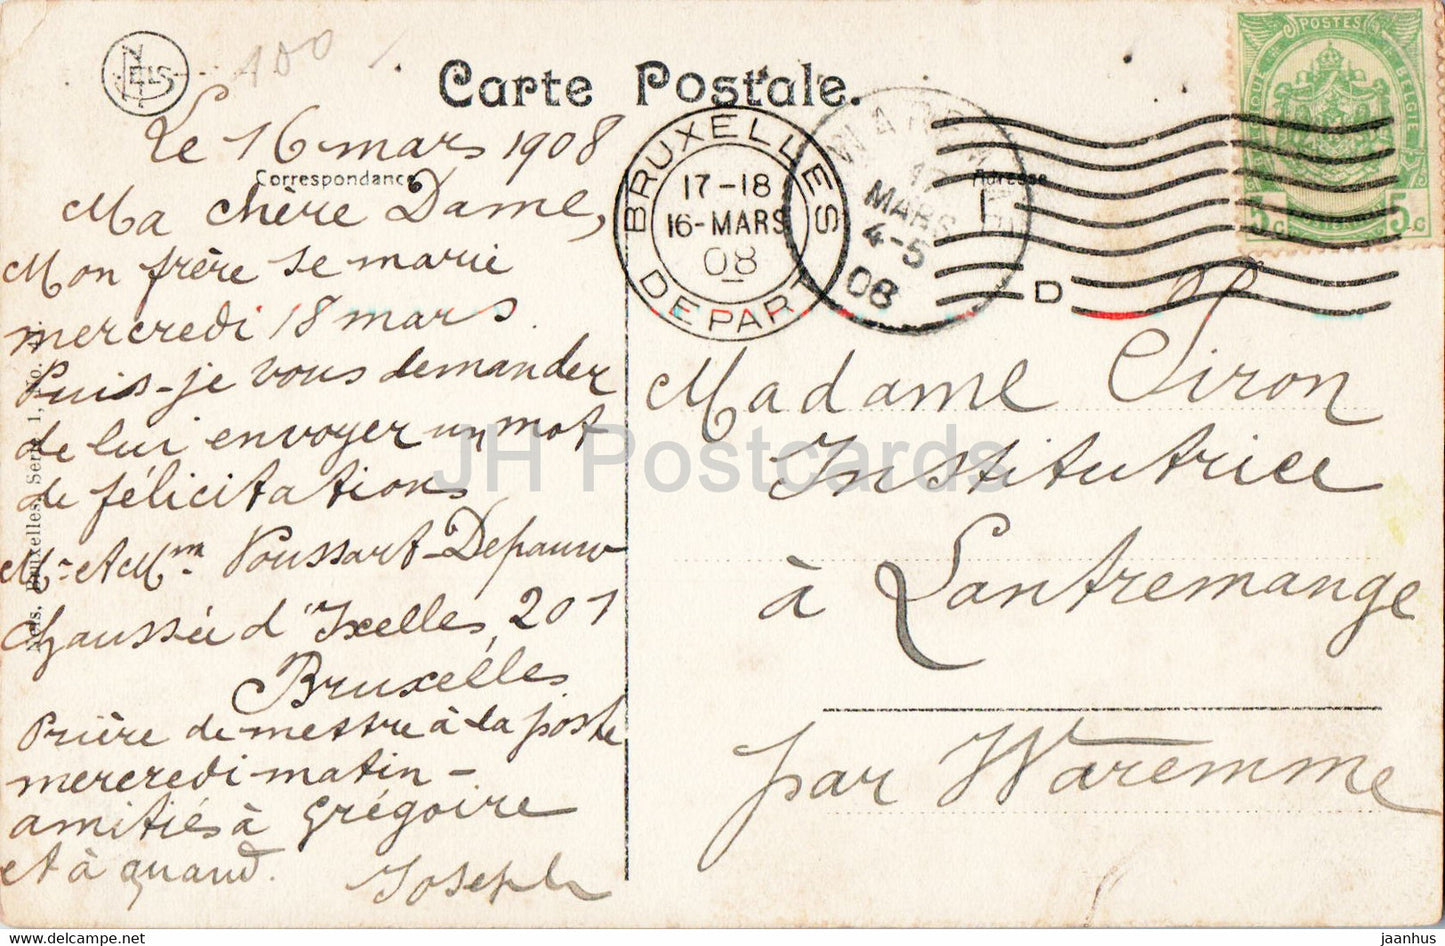 NELS
100
Carte Postale.
Correspondance
Adresse
Le 16 mars 1908
Ma chère Dame,
Mon frère se marie
mercredi 18 mars.
Puis-je vous demander
de lui envoyer un mot
de félicitations
Mr et Mme Voussart-Depauw
Chaussée d'Ixelles, 201
Bruxelles
Prière de mettre à la poste
mercredi matin -
amitiés à Grégoire
et à quand.
Joseph
Nels, Bruxelles, Serie 1, No.
BRUXELLES
17-18
16-MARS
08
DEPART
WAREMME
MARS
4-5
08
D
POSTES
BELGIQUE
BELGIE
5c 5c
Madame Siron
Institutrice
à Lantremange
par Waremme
JH Postcards
jaanhus @ delcampe.net